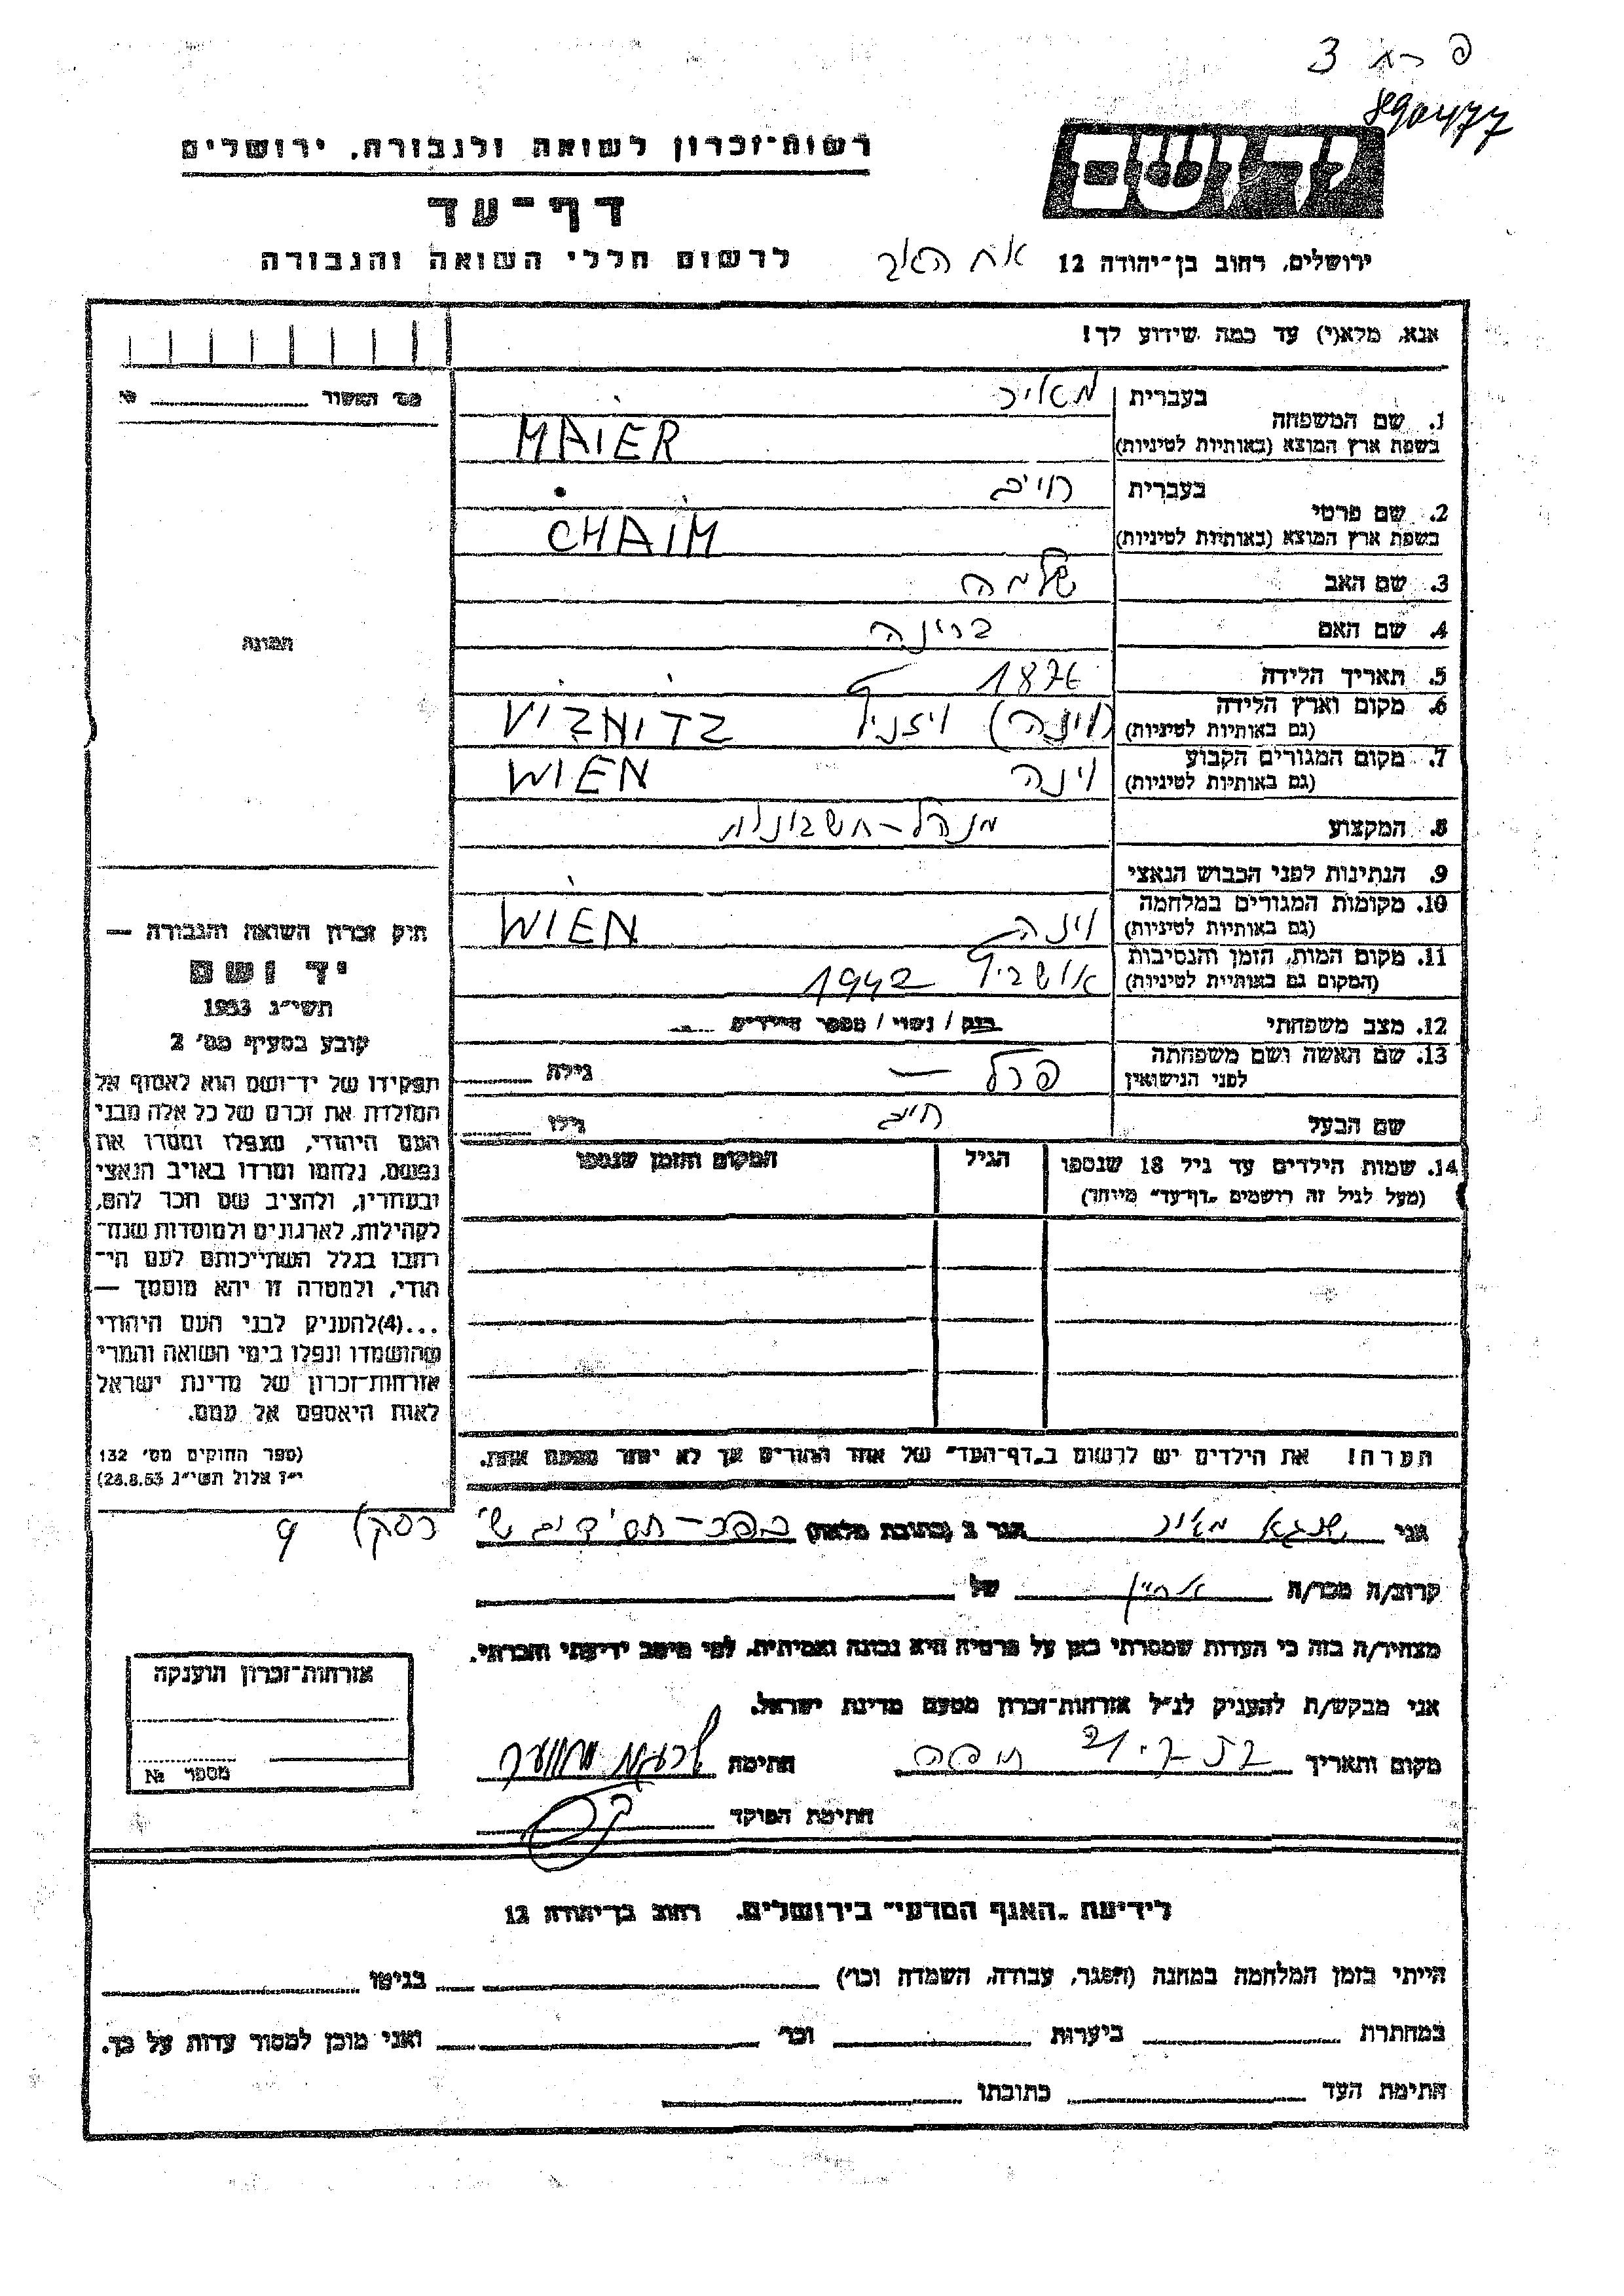 3
890477
יד ושם
רשות־זכרון לשואה ולגבורה, ירושלים
דף־עד
לרשום חללי השואה והגבורה
ירושלים, רחוב בן־יהודה 12
אנא, מלא(י) עד כמה שידוע לך!
מס׳ האשור № 
1. שם המשפחה בעברית מאיר
בשפת ארץ המוצא (באותיות לטיניות) MAIER
2. שם פרטי בעברית חיים
בשפת ארץ המוצא (באותיות לטיניות) CHAIM
3. שם האב שלמה
4. שם האם ברינה
תמונה
5. תאריך הלידה 1876
6. מקום וארץ הלידה (וינה)
(גם באותיות לטיניות)
7. מקום המגורים הקבוע וינה WIEN
(גם באותיות לטיניות)
8. המקצוע מנהל-חשבונות
9. הנתינות לפני הכבוש הנאצי
10. מקומות המגורים במלחמה וינה WIEN
(גם באותיות לטיניות)
11. מקום המות, הזמן והנסיבות אושביץ 1942
(המקום גם באותיות לטיניות)
12. מצב משפחתי רווק / נשוי / מספר הילדים
13. שם האשה ושם משפחתה פרל — גילה
לפני הנישואין
שם הבעל חיים גילו
14. שמות הילדים עד גיל 18 שנספו הגיל המקום והזמן שנספו
(מעל לגיל זה רושמים „דף־עד״ מיוחד)
חוק זכרון השואה והגבורה —
יד ושם
תשי״ג 1953
קובע בסעיף מס׳ 2
תפקידו של יד־ושם הוא לאסוף אל
המולדת את זכרם של כל אלה מבני
העם היהודי, שנפלו ומסרו את
נפשם, נלחמו ומרדו באויב הנאצי
ובעוזריו, ולהציב שם וזכר להם,
לקהילות, לארגונים ולמוסדות שנח־
רבו בגלל השתייכותם לעם הי־
הודי, ולמטרה זו יהא מוסמך —
...(4)להעניק לבני העם היהודי
שהושמדו ונפלו בימי השואה והמרי
אזרחות־זכרון של מדינת ישראל
לאות היאספם אל עמם.
(ספר החוקים מס׳ 132
י״ז אלול תשי״ג 28.8.53)
הערה! את הילדים יש לרשום ב„דף־העד״ של אחד ההורים אך לא יותר מפעם אחת.
אני מאיר הגר ב (כתובת מלאה) כפר-חסידים 9
קרוב/ה מכר/ה אחיין של
מצהיר/ה בזה כי העדות שמסרתי כאן על פרטיה היא נכונה ואמיתית, לפי מיטב ידיעתי והכרתי.
אני מבקש/ת להעניק לנ״ל אזרחות־זכרון מטעם מדינת ישראל.
מקום ותאריך חיפה חתימה
חתימת הפוקד
אזרחות־זכרון הוענקה
מספר №
לידיעת „האגף המדעי״ בירושלים, רחוב בן־יהודה 12
הייתי בזמן המלחמה במחנה (הסגר, עבודה, השמדה וכו׳) בגיטו
במחתרת ביערות וכו׳ ואני מוכן למסור עדות על כך.
חתימת העד כתובתו